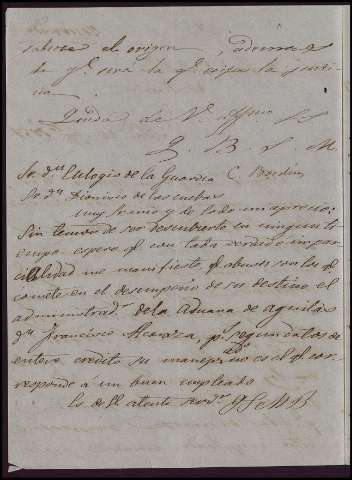 saberse el origen, ademas q.e
te q.e sera la q.e exija la justi
cia
Queda de V. affmo S S
Q. B. S. M.
Sr. d.n Eulogio de la Guardia C. Bordiu
Sr. d.n Dionicio de las cuebas
muy Sr mio y de todo mi aprecio:
Sin temor de ser descubierto en ningun ti
empo espero q.e con toda verdad e inpar
cialidad me manifieste q.e abusos son los q.e
comete en el desempeño de su destino el
administrad.r de la Aduana de aguilas
d.n Francisco Alcaraz, p.s segun datos de
entero credito su manejo no es el q.e cor
responde a un buen empleado
Es de V. atento serv.r Q S M B